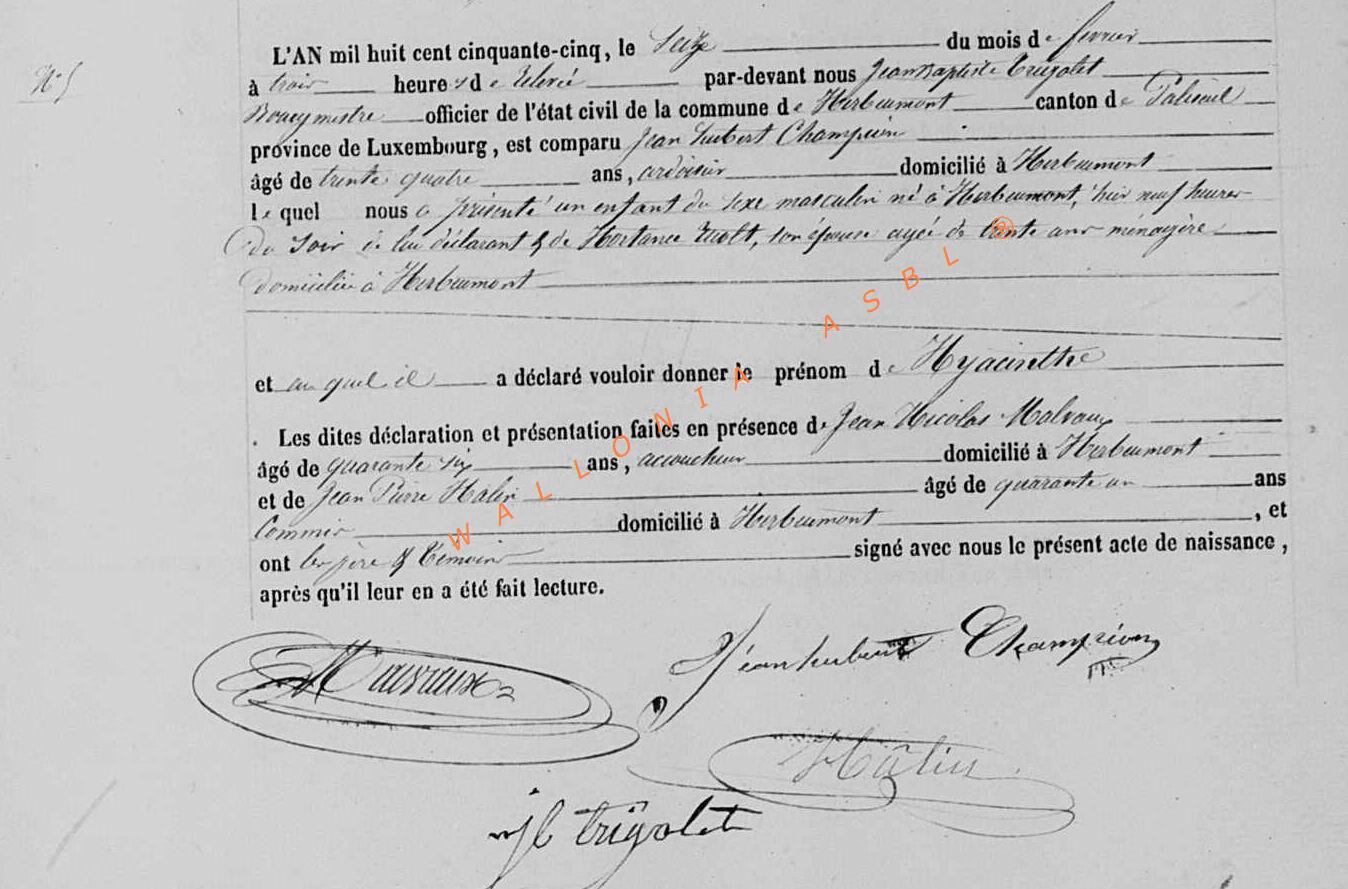 N° 5
L'AN mil huit cent cinquante-cinq, le Seize du mois de fevrier
à trois heures de relevée par-devant nous Jean Baptiste Trigolet
Bourgmestre officier de l'état civil de la commune de Herbeumont canton de Paliseul
province de Luxembourg, est comparu Jean hubert Champion
âgé de trente quatre ans, ardoisier domicilié à Herbeumont
lequel nous a présenté un enfant du sexe masculin né à Herbeumont, hier neuf heures
du soir de lui déclarant & de Hortance, son épouse agée de trente ans ménagère
domiciliée à Herbeumont
et auquel il a déclaré vouloir donner le prénom de Hyacinthe
Les dites déclaration et présentation faites en présence de Jean Nicolas Malvaux
âgé de quarante six ans, accoucheur domicilié à Herbeumont
et de Jean Pierre Halin âgé de quarante un ans
Commis domicilié à Herbeumont, et
ont les père & témoins signé avec nous le présent acte de naissance,
après qu'il leur en a été fait lecture.
WALLONIA ASBL ®
Jean hubert Champion
Malvaux
Hâlin
JB Trigolet